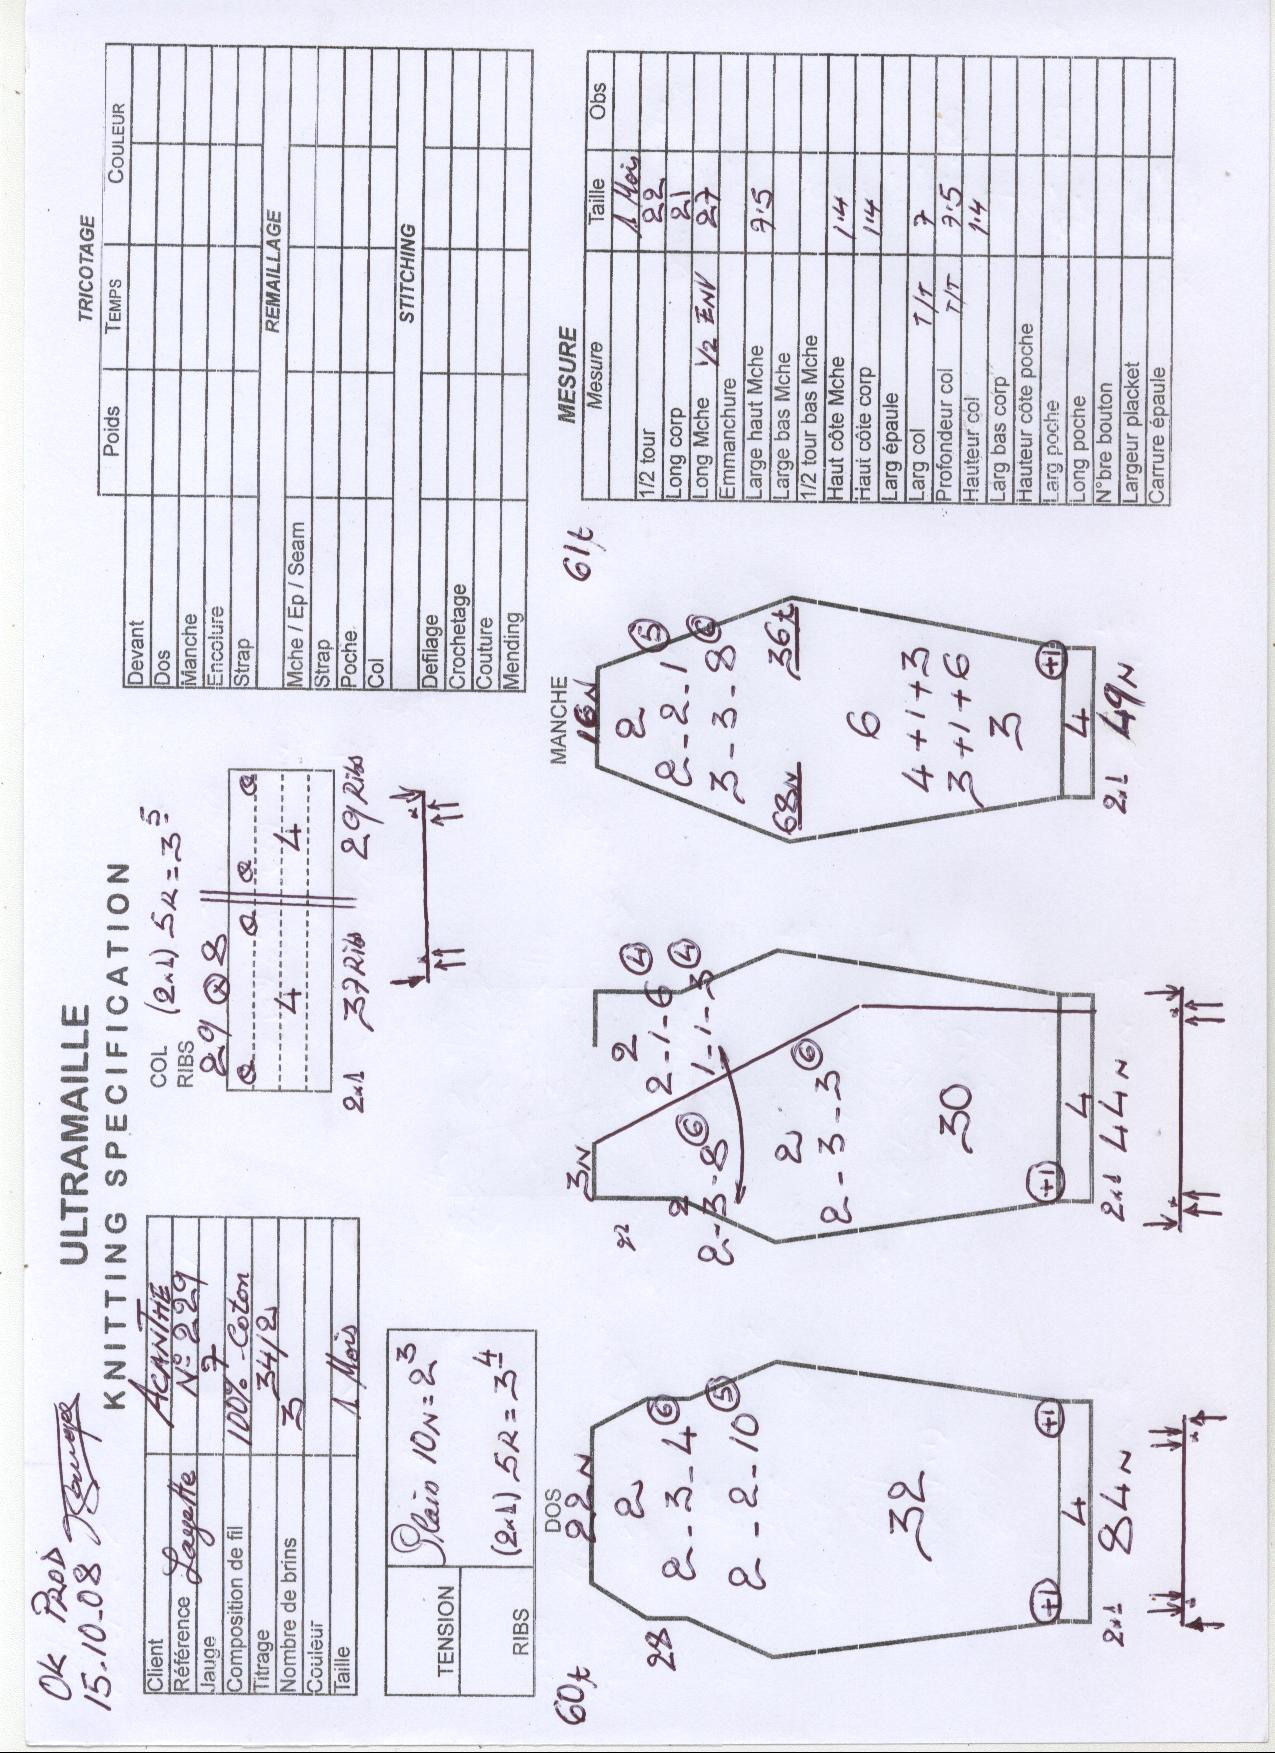 OK PROD
15-10-08
ULTRAMAILLE
KNITTING SPECIFICATION
Client ACANTHE
Référence Layette N° 229
Jauge 7
Composition de fil 100% Coton
Titrage 34/2
Nombre de brins 3
Couleur
Taille 1 Mois
TENSION Plain 10N = 2 3
RIBS (2x1) 5R = 3 4
COL (2x1) 5R = 3 5
RIBS
29 8
4 4
2x1 37 Ribs 29 Ribs
TRICOTAGE
Poids TEMPS COULEUR
Devant
Dos
Manche
Encolure
Strap
REMAILLAGE
Mche / Ep / Seam
Strap
Poche
Col
STITCHING
Defilage
Crochetage
Couture
Mending
60t
DOS
22N
2
28
2-3-4 6
2-2-10 5
32
+1 +1
4
2x1 84N
3N
22
2
2-1-6 4
1-1-3 4
2
2-3-8 6
2
2-3-3 6
30
+1
4
2x1 44N
MANCHE
16N
61t
2
2-2-1 5
3-3-8 6
68N 36t
6
4+1+3
3+1+6
3
+1
4
2x1 49N
MESURE
Mesure Taille Obs
1 Mois
1/2 tour 22
Long corp 21
Long Mche 1/2 ENV 27
Emmanchure
Large haut Mche 7.5
Large bas Mche
1/2 tour bas Mche
Haut côte Mche 1.4
Haut côte corp 1.4
Larg épaule
Larg col T/T 7
Profondeur col T/T 7.5
Hauteur col 1.4
Larg bas corp
Hauteur côte poche
Larg poche
Long poche
N°bre bouton
Largeur placket
Carrure épaule